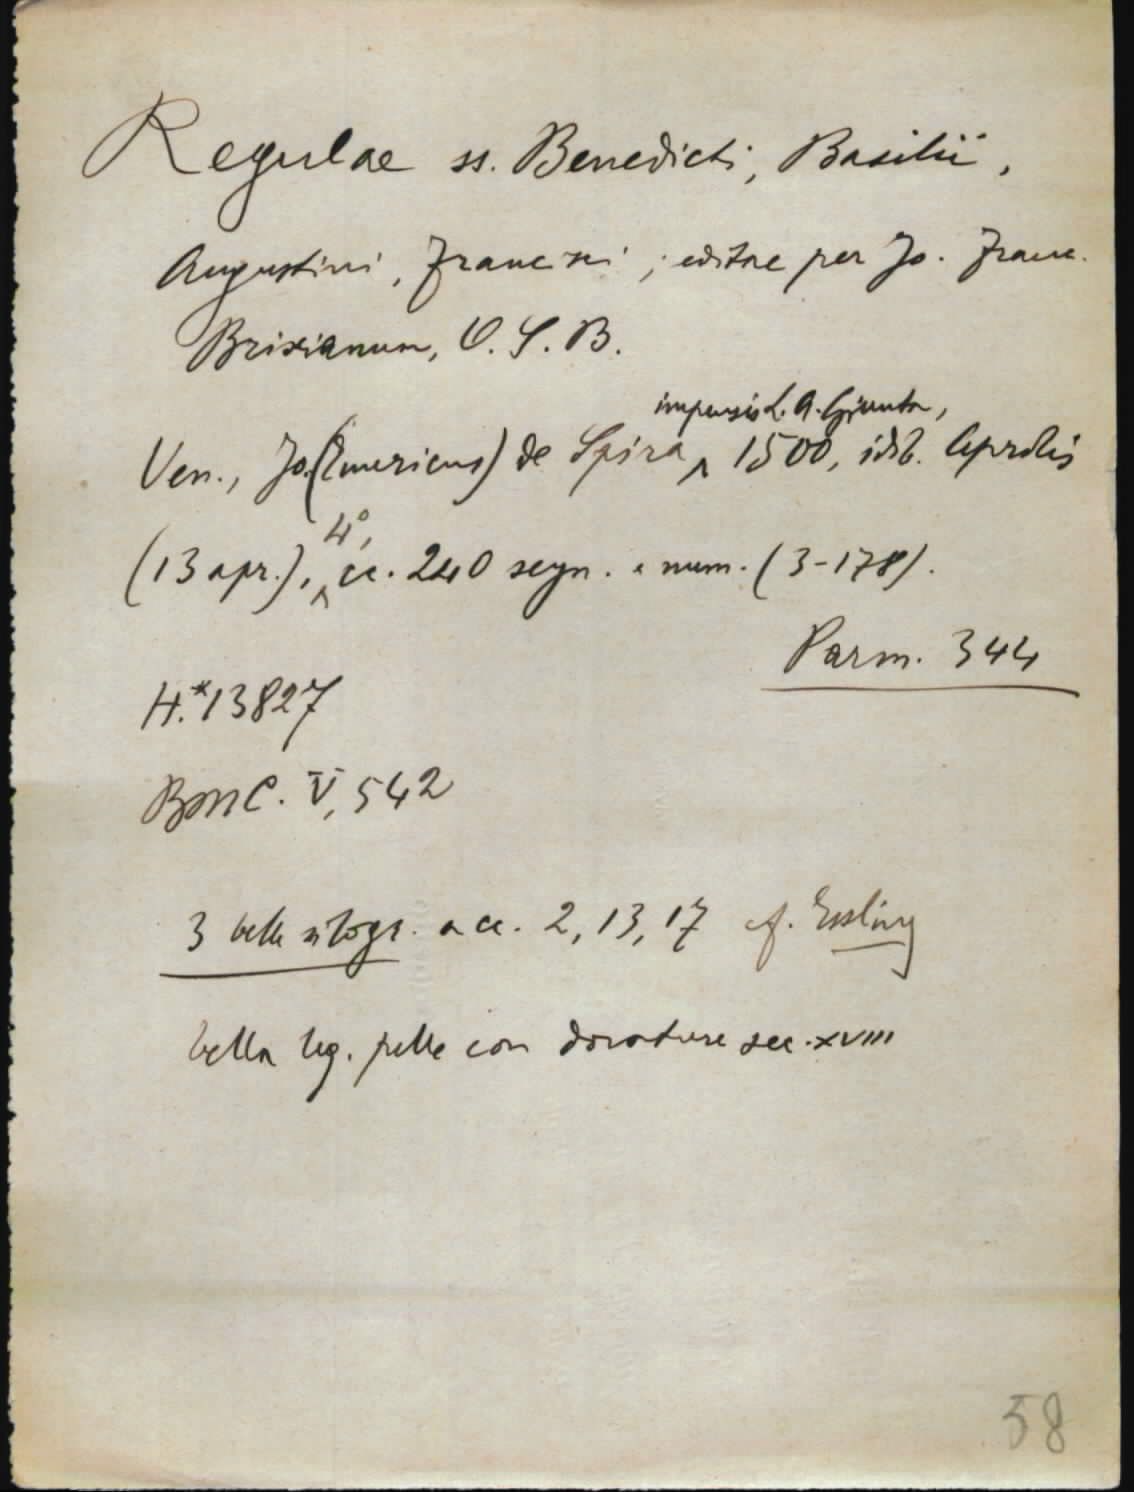 Regulae ss. Benedicti, Basilii,
Augustini, Francisci; editae per Jo. Franc.
Brixianum, O. S. B.
impensis L. A. Giunta,
Ven., Jo. (Emericus) de Spira, 1500, idib. Aprilis
4°,
(13 apr.), cc. 240 segn. e num. (3-178).
Parm. 344
H.*13827
BMC. V, 542
3 belle xilogr. a cc. 2, 13, 17 cf. Essling
bella leg. pelle con dorature sec. XVIII
58